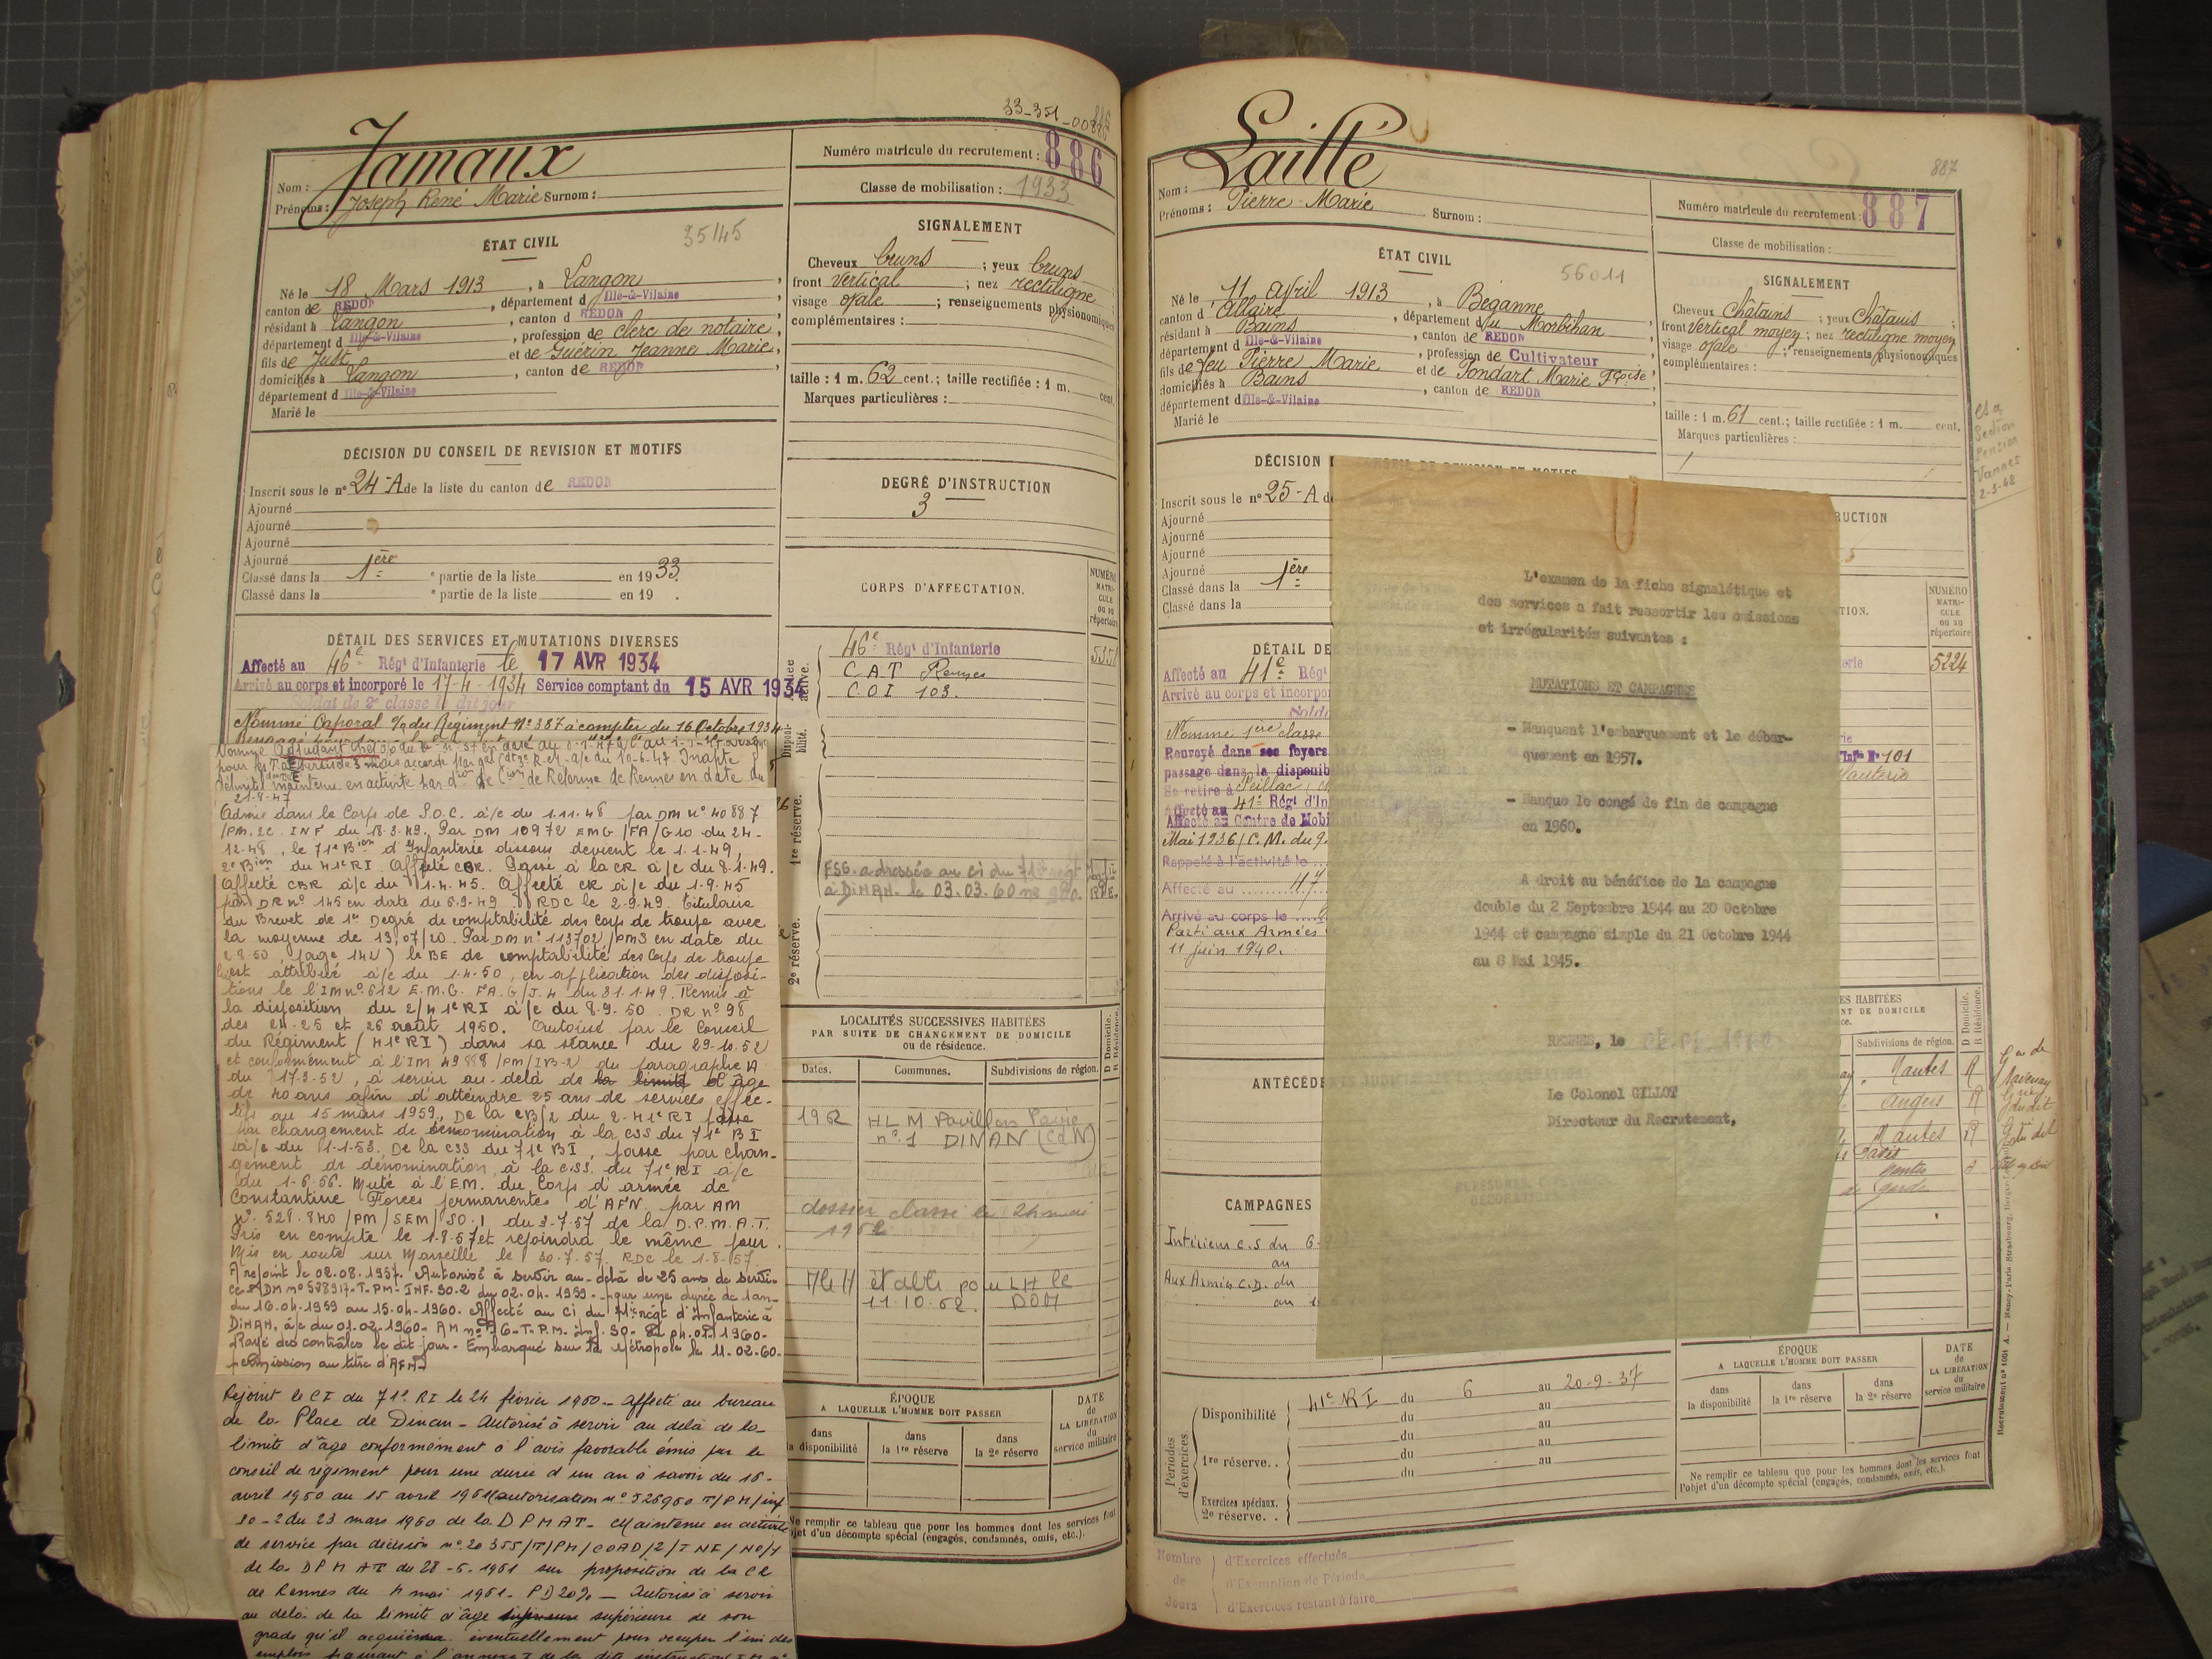 33-351-00886
Jamaux
Nom :
Prénoms : Joseph René Marie Surnom :
Numéro matricule du recrutement : 886
Classe de mobilisation : 1933
ÉTAT CIVIL
35145
Né le 18 Mars 1913, à Langon,
canton de REDON, département d Ille-&-Vilaine
résidant à Langon, canton d REDON
département d Ille-&-Vilaine, profession de clerc de notaire,
fils de Just et de Guérin Jeanne Marie,
domiciliés à Langon, canton de REDON,
département d Ille-&-Vilaine
Marié le
SIGNALEMENT
Cheveux bruns ; yeux bruns
front vertical ; nez rectiligne
visage ovale ; renseignements physionomiques
complémentaires :
taille : 1 m. 62 cent.; taille rectifiée : 1 m. cent.
Marques particulières :
DÉCISION DU CONSEIL DE REVISION ET MOTIFS
Inscrit sous le n° 24-A de la liste du canton de REDON
Ajourné
Ajourné
Ajourné
Ajourné
Classé dans la 1ère e partie de la liste en 1933.
Classé dans la e partie de la liste en 19 .
DEGRÉ D'INSTRUCTION
3
DÉTAIL DES SERVICES ET MUTATIONS DIVERSES
Affecté au 46e Régt d'Infanterie le 17 AVR 1934
Arrivé au corps et incorporé le 17-4-1934 Service comptant du 15 AVR 1934
Soldat de 2e classe le dit jour
Nommé Caporal o/o du Régiment N° 387 à compter du 16 Octobre 1934
Nommé Adjudant chef
Inapte
définitif maintenu en activité par de Réforme de Rennes en date du
21-8-47
Admis dans le Corps de S.O.C. à/c du 1.11.48 par DM n° 40887
/PM.2C.INF du 18.3.49. Par DM 10972 EMG/FA/G10 du 24-
12-48, le 71e Bion d'Infanterie dissous devient le 1-1-49,
2e Bion du 41e RI. Affecté CBR. Passé à la CR à/c du 8-1-49.
Affecté CBR à/c du 1-4-45. Affecté CR à/c du 1-9-45
par DR n° 145 en date du 6-9-49. RDC le 2-9-49. Titulaire
du Brevet de 1er Degré de comptabilité des Corps de troupe avec
la moyenne de 13,07/20. Par DM n° 113702/PMS en date du
28-50, (page 142) le BE de comptabilité des Corps de troupe
lui est attribué à/c du 1-4-50, en application des disposi-
tions de l'IM n° 612 E.M.G. FA.G/J.4 du 31-1-49. Remis à
la disposition du 2/41e RI à/c du 8-9-50. DR n° 98
des 24-25 et 26 août 1950. Autorisé par le Conseil
du Régiment (41e RI) dans sa séance du 29-10-52
et conformément à l'IM 49888/PM/IB-2 du paragraphe A
du 17-3-52, à servir au-delà de la limite d'âge
de 40 ans afin d'atteindre 25 ans de services effec-
tifs au 15 mars 1959. De la CB/2 du 2-41e RI passe
par changement de dénomination à la CSS du 71e BI
à/c du 1-1-53. De la CSS du 71e BI, passe par chan-
gement de dénomination, à la C.S.S. du 71e RI à/c
du 1-6-56. Muté à l'EM. du Corps d'armée de
Constantine Forces permanentes d'AFN par AM
n° 528.840/PM/SEM/SO.1 du 3-7-57 de la D.P.M.A.T.
Pris en compte le 1-8-57 et rejoindra le même jour.
Mis en route sur Marseille le 30-7-57. RDC le 1-8-57.
A rejoint le 02.08.1957. Autorisé à servir au-delà de 25 ans de servi-
ce DM n° 528917-T-PM-INF-SO-2 du 02-04-1959 pour une durée de 1 an
du 16-04-1959 au 15-04-1960. Affecté au CI du 71e régt d'Infanterie à
DINAN, à/c du 01-02-1960-
Rayé des contrôles le dit jour. Embarqué sur la métropole le 11-02-60-
permission au titre d'AFN
Rejoint le CI du 71e RI le 24 février 1960 - Affecté au bureau
de la Place de Dinan - Autorisé à servir au delà de la
limite d'âge conformément à l'avis favorable émis par le
conseil de régiment pour une durée d'un an à savoir du 16-
avril 1960 au 15 avril 1961 autorisation n° 526960 T/PM/inf
SO-2 du 23 mars 1960 de la DPMAT - Maintenu en activité
de service par décision n° 20355/T/PM/COAD/2/INF/NO/Y
de la DPMAT du 28-6-1961 sur proposition de la CR
de Rennes du 4 mai 1961 - PD 20% - Autorisé à servir
au delà de la limite d'âge supérieure de son
grade qu'il acquièrera éventuellement pour occuper l'un des
emplois figurant à l'annexe I de la dite instruction
CORPS D'AFFECTATION.
NUMÉRO MATRICULE ou au répertoire
Armée active.
46e Rég' d'Infanterie
C.A.T Rennes
C O I 103.
Disponibilité.
1re réserve.
ESG. adressée au ci du 71e régt
à DINAN. le 03.03.60
2e réserve.
LOCALITÉS SUCCESSIVES HABITÉES
PAR SUITE DE CHANGEMENT DE DOMICILE
ou de résidence.
Dates. Communes. Subdivisions de région. D Domicile. R Résidence.
1962 HLM Pavillon Pavie
n° 1 DINAN (CdN)
dossier classé le 24 mai
1962
établi pour LH le
11.10.62.
ÉPOQUE
A LAQUELLE L'HOMME DOIT PASSER
dans la disponibilité dans la 1re réserve dans la 2e réserve
DATE de LA LIBÉRATION du service militaire
Ne remplir ce tableau que pour les hommes dont les services font
l'objet d'un décompte spécial (engagés, condamnés, omis, etc.).
887
Laillé
Nom :
Prénoms : Pierre Marie Surnom :
Numéro matricule du recrutement : 887
Classe de mobilisation :
ÉTAT CIVIL
56011
Né le 11 avril 1913, à Béganne
canton d'Allaire, département du Morbihan,
résidant à Bains, canton de REDON
département d Ille-&-Vilaine, profession de Cultivateur
fils de feu Pierre Marie et de Tondart Marie Fçoise,
domiciliés à Bains, canton de REDON
département d Ille-&-Vilaine
Marié le
SIGNALEMENT
Cheveux Châtains ; yeux Châtains ;
front vertical moyen ; nez rectiligne moyen
visage ovale ; renseignements physionomiques
complémentaires :
taille : 1 m. 61 cent.; taille rectifiée : 1 m. cent.
Marques particulières :
Section
Pension
Vannes
2-3-48
DÉCISION
Inscrit sous le n° 25-A de
Ajourné
Ajourné
Ajourné
Ajourné
Classé dans la 1ère
Classé dans la
DÉTAIL DE
Affecté au 41e Rég'
Arrivé au corps et incorpo
Nommé 1ère classe
Renvoyé dans ses foyers
passage dans la disponib
Se retire à Peillac
Affecté au 41e Rég' d'In
Affecté au Centre de Mobi
Mai 1936 (C.M. du 9.
Rappelé à l'activité le
Affecté au 47
Arrivé au corps le
Parti aux Armées
11 juin 1940.
ANTÉCÉDE
CAMPAGNES
Intérieur c.s du 6-
au
Aux Armées C.D. du
au
L'examen de la fiche signalétique et
des services a fait ressortir les omissions
et irrégularités suivantes :
MUTATIONS ET CAMPAGNES
- Manquent l'embarquement et le débar-
quement en 1957.
- Manque le congé de fin de campagne
en 1960.
A droit au bénéfice de la campagne
double du 2 Septembre 1944 au 20 Octobre
1944 et campagne simple du 21 Octobre 1944
au 8 Mai 1945.
RENNES, le
Le Colonel GILLOT
Directeur du Recrutement,
RUCTION
TION.
NUMÉRO MATRICULE ou au répertoire
5224
101
ES HABITÉES
NT DE DOMICILE
Subdivisions de région. D Domicile. R Résidence.
Nantes R
Angers R
Nantes R
Périodes d'exercices
Disponibilité 41e RI du 6 au 20-9-37
du au
du au
1re réserve.. du au
du au
Exercices spéciaux.
2e réserve. .
ÉPOQUE
A LAQUELLE L'HOMME DOIT PASSER
dans la disponibilité dans la 1re réserve dans la 2e réserve
DATE de LA LIBÉRATION du service militaire
Ne remplir ce tableau que pour les hommes dont les services font
l'objet d'un décompte spécial (engagés, condamnés, omis, etc.).
Nombre de Jours
d'Exercices effectués
d'Exemption de Période
d'Exercices restant à faire